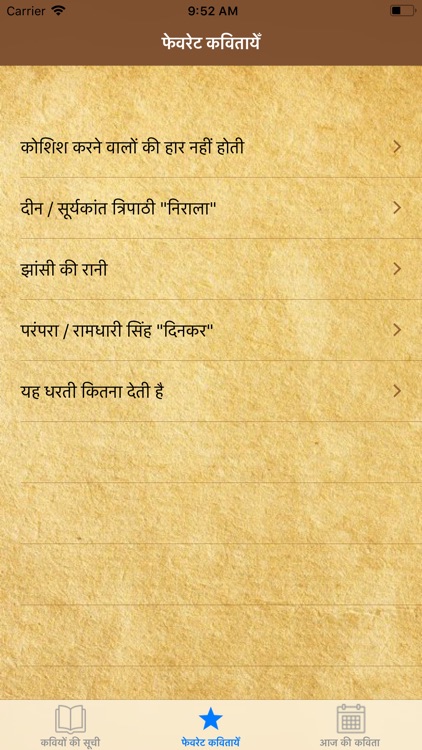 Carrier 9:52 AM
फेवरेट कवितायेँ
कोशिश करने वालों की हार नहीं होती
दीन / सूर्यकांत त्रिपाठी "निराला"
झांसी की रानी
परंपरा / रामधारी सिंह "दिनकर"
यह धरती कितना देती है
कवियों की सूची फेवरेट कवितायेँ आज की कविता